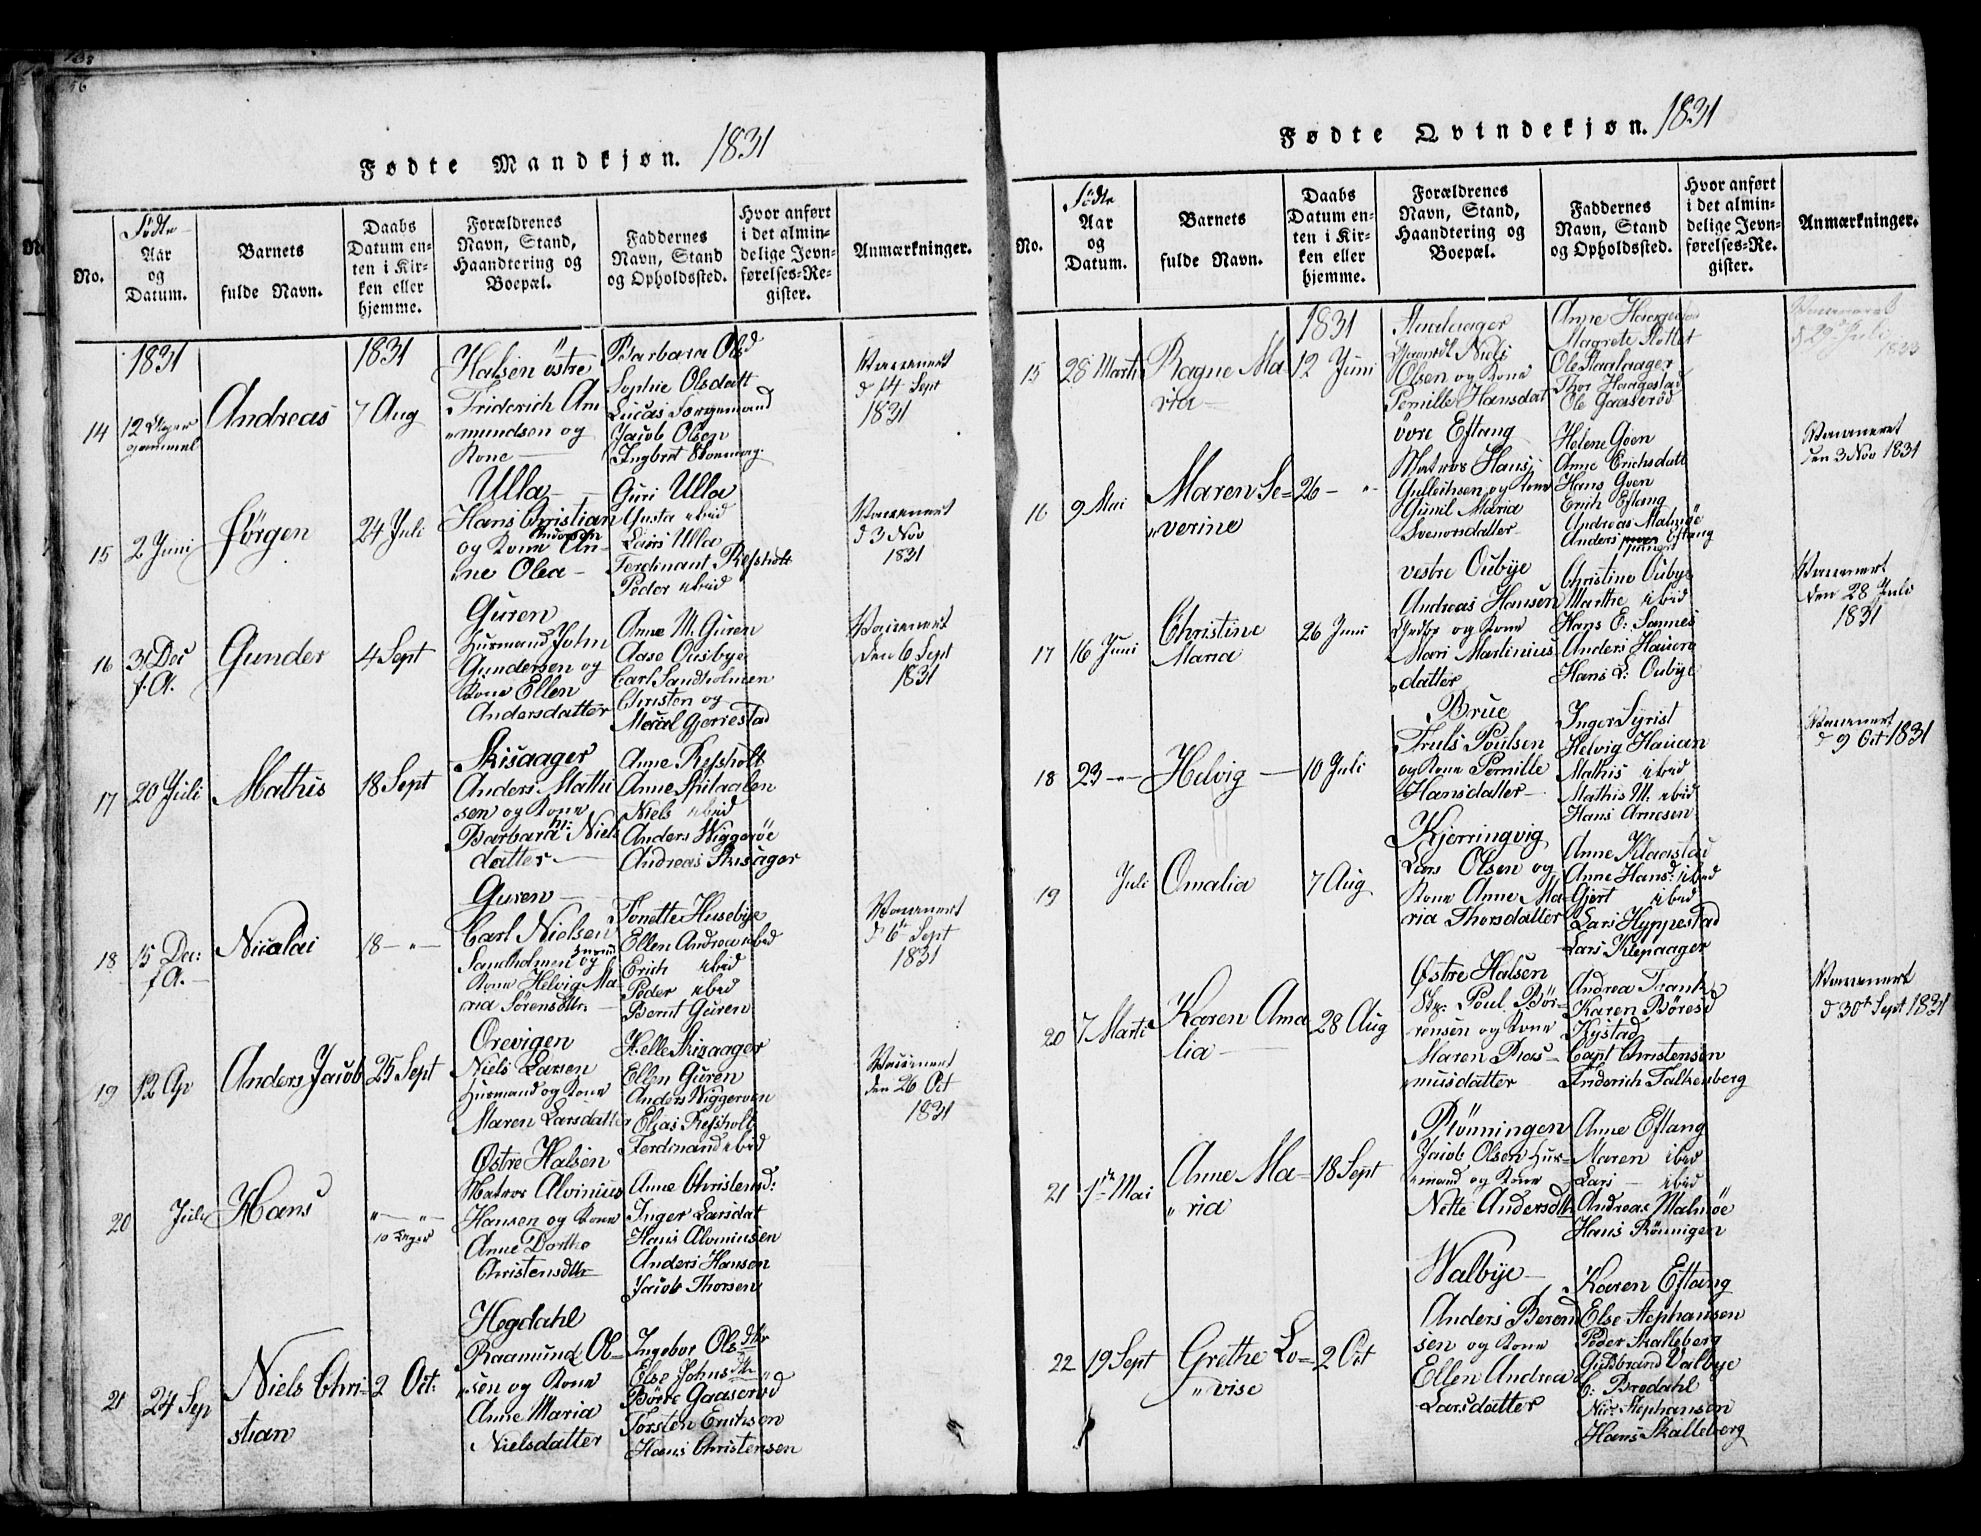 Fødte Mandkjøn. 1831
No.
Fødte
Aar
og
Datum.
Barnets
fulde Navn.
Daabs
Datum en-
ten i Kir-
ken eller
hjemme.
Forældrenes
Navn, Stand,
Haandtering og
Boepæl.
Faddernes
Navn, Stand
og Opholdssted.
Hvor anført
i det almin-
delige Jevn-
førelses-Re-
gister.
Anmærkninger.
1831
1831
14
12 Uger
gammel
Andreas
7 Aug
Halsen östre
Friderich Am
mundsen og
Kone
Barbara Olsd
Sophie Olsdatt
Lucas Sørgemand
Jacob Olsen
Ingbret
Vaccineret
d 14 Sept
1831
15
2 Juni
Jørgen
24 Juli
Ulla
Hans Christian
Andersen
og Kone An-
ne Olea
Guri Ulla
Gusta ibid
Lars Ulla
Ferdinant Refsholt
Peder ibid
Vaccinert
d 3 Nov
1831
16
31 Dec
f. A.
Gunder
4 Sept
Guren
Huusmand John
Gundersen og
Kone Ellen
Andersdatter
Anne M. Guren
Aase Ousbye
Carl Sandholmen
Christen og
Gjerrestad
Vaccinert
den 6 Sept
1831
17
20 Juli
Mathis
18 Sept
Skisaager
Anders Mathi
sen og Kone
Barbara M: Niels
datter
Anne Refsholt
Anne Spitaalen
Niels ibid
Anders Wiggeröe
Andreas Skisager
18
15 Dec:
f A.
Nicolai
18 — " —
Guren
Carl Nielsen
Sandholmen og
Kone Helvig Ma-
ria Sørensdttr.
Tonette Husebye
Ellen Andrea ibid
Erich ibid
Peder ibid
Bernt Guren
Vaccinert
d 6te Sept
1831
19
12 Ap
Anders Jacob
25 Sept
Orevigen
Niels Larsen
Huusmand og Kone
Maren Larsdatter
Helle Skisaager
Ellen Guren
Anders Wiggeröen
Elias Refsholt
Ferdinand ibid
Vaccinert
den 26 Oct
1831
20
Juli
Hans
" — " —
Østre Halsen
Matros Alvinius
Hansen og Kone
Anne Dorthe
Christensdttr
Anne Christensd:
Inger Larsdat
Hans Alvinussen
Anders Hansen
Jacob Thorsen
21
24 Sep
Niels Chri-
stian
2 Oct:
Hegdahl
Raamund Ol-
sen og Kone
Anne Maria
Nielsdatter
Ingebor Olsdttr
Else Johnsdttr
Börre Gaaserød
Torsten Erichsen
Hans Christensen
Fødte Qvindekjøn. 1831
No.
Fødte
Aar
og
Datum.
Barnets
fulde Navn.
Daabs
Datum en-
ten i Kir-
ken eller
hjemme.
Forældrenes
Navn, Stand,
Haandtering og
Boepæl.
Faddernes
Navn, Stand
og Opholdssted.
Hvor anført
i det almin-
delige Jevn-
førelses-Re-
gister.
Anmærkninger.
1831
15
28 Marti
Ragne Ma-
ria
12 Juni
Aalaager
Niels
Olsen og Kone
Pernille Hansdat
Anne Haugestad
Magrete
Ole Aalaager
Thor Haugestad
Ole Gaaserød
Vaccineret
d 29 Juli
1833
16
9 Mai
Maren Se-
verine
26 — "
övre Eftang
Matros Hans
Gulleichsen og Kone
Gunil Maria
Svenorsdatter
Helene Goen
Anne Erichsdatt
Hans Goen
Erich Eftang
Andreas Malmöe
Anders Eftang
Vaccineret
den 3 Nov 1831
17
16 Juni
Christine
Maria
26 Juni
vestre Oubye
Andreas Hansen
og Kone
Mari Martinius
datter
Christine Oubye
Marthe ibid
Hans E: Sannes
Anders Hauen
Hans L: Oubye
Vaccinert
den 28 Juli
1831
18
23 — " —
Helvig
10 Juli
Brue
Truls Poulsen
og Kone Pernille
Hansdatter
Inger Syrist
Helvig Hauan
Mathis ibid
Mathis M: ibid
Hans Arnesen
Vaccinert
d 9 Oct 1831
19
Juli
Omalia
7 Aug
Kjerringvig
Lars Olsen og
Kone Anne Ma-
ria Thorsdatter
Anne Klaastad
Anne Hansd: ibid
Gjert ibid
Lars Hyppestad
Lars Klepaager
20
7 Marti
Karen Ama
lia
28 Aug
Østre Halsen
Skp. Poul Bör-
rensen og Kone
Maren Ras-
musdatter
Andrea Frank
Karen Böresd
Rystad
Capt Christensen
Friderich Falkenberg
Vaccinert
d 30te Sept 1831
21
1te Mai
Anne Ma-
ria
18 Sept
Rönningen
Jacob Olsen Hus-
mand og Kone
Nette Andersdttr
Anne Eftang
Maren ibid
Lars — ibid
Andreas Malmöe
Hans Rönnigen
22
19 Sept
Grethe Lo-
vise
2 Oct
Walbye
Anders Berend
sen og Kone
Ellen Andrea
Larsdatter
Karen Eftang
Else Stephansen
Peder Skalleberg
Guldbrand Valbye
C: Bredahl
Nic: Stephansen
Hans Skalleberg